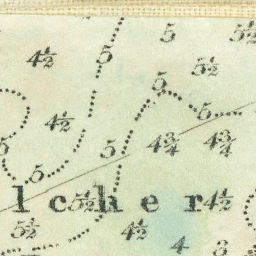 5 5½
4½ 5 5½
5 5
4½ 5 4¾ 4¾
5 5
l c 5½ h e r 4½
5½ 4½
4 3